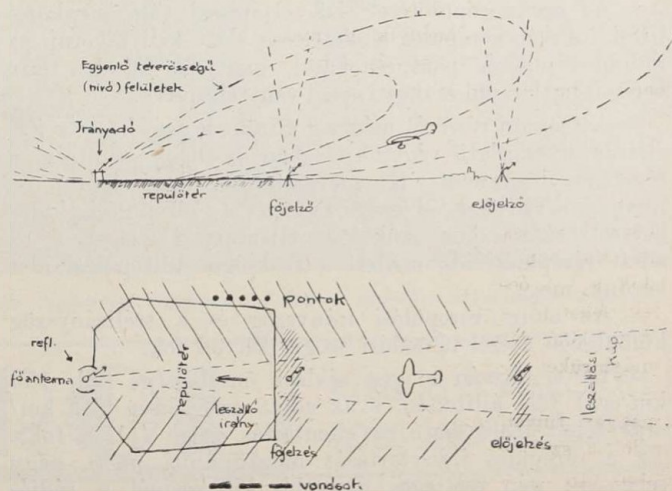 Egyenlő térerősségű
(nívó) felületek
Irányadó
repülőtér
főjelző
előjelző
pontok
refl.
főantenna
repülőtér
leszálló
irány
főjelzés
előjelzés
leszállási
kúp
vonások